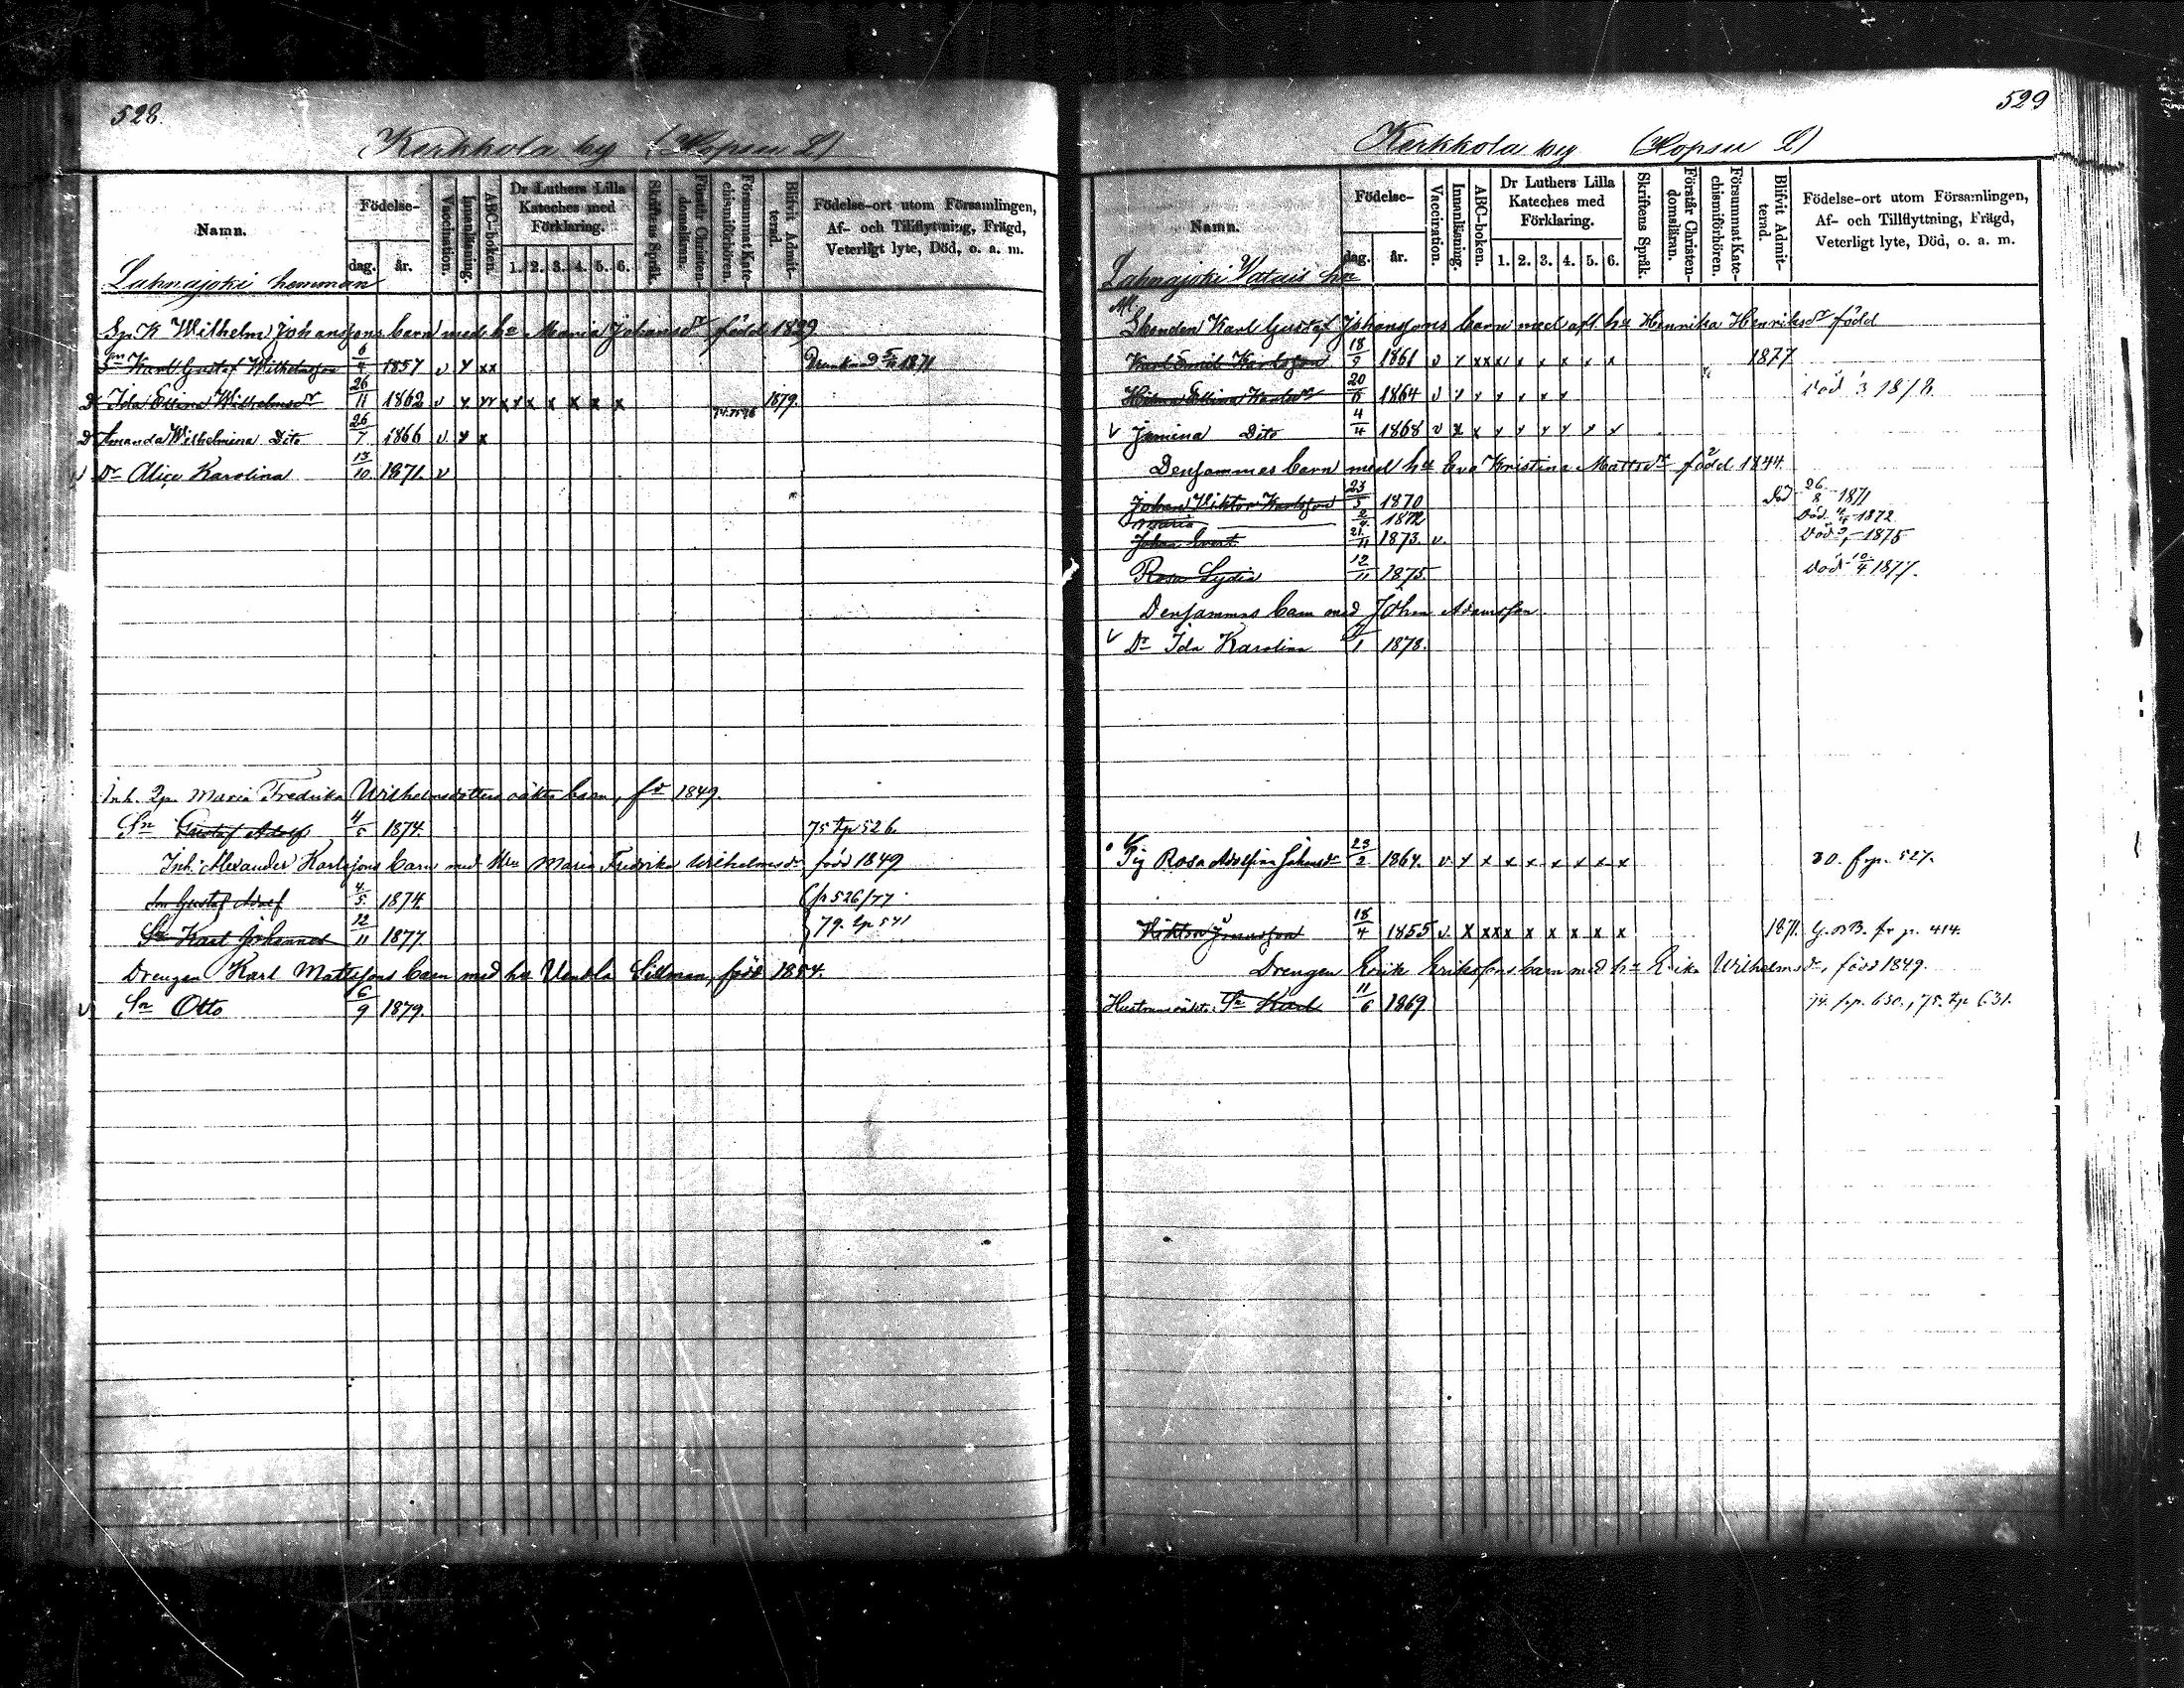 528.
Kerkkola by (Hopsu L)
Namn.
Födelse-
dag.
år.
Vaccination.
Innanläsning.
ABC-boken.
Dr Luthers Lilla Kateches med Förklaring.
1. 2. 3. 4. 5. 6.
Skriftens Språk.
Förstår Christendomsläran.
Försummat Katechismiförhören.
Blifvit Admitterad.
Födelse-ort utom Församlingen,
Af- och Tillflyttning, Frägd,
Veterligt lyte, Död, o. a. m.
Lahnajoki hemman
Sp. K Wilhelm Johanssons barn med ha Maria Johansdr född 1829
Sn Karl Gustaf Wilhelmsson 8/4 1857 v y xx 1871
D Ida Ellina Wilhelmsdr 26/11 1862 v x xx x x x x x x 1879.
D Amanda Wilhelmina Dito 26/7 1866 v y x
v Dr Alice Karolina 13/10 1871. v
Inh. Maria Fredrika Wilhelmsdotters oäkta barn, fd 1849.
Sn Gustaf Adolf 4/5 1874. 75 tp 526
Inh. Alexander Karlssons barn med Hu Maria Fredrika Wilhelmsdr född 1849
Sn Gustaf Adolf 4/5 1874 fr 526/77
Sn Karl Johannes 12/11 1877. 79. tp 541
Drengen Karl Mattssons barn med ha Vendla Sillman, född 1854.
v Sn Otto 6/9 1879.
529
Kerkkola by (Hopsu L)
Namn.
Födelse-
dag.
år.
Vaccination.
Innanläsning.
ABC-boken.
Dr Luthers Lilla Kateches med Förklaring.
1. 2. 3. 4. 5. 6.
Skriftens Språk.
Förstår Christendomsläran.
Försummat Katechismiförhören.
Blifvit Admitterad.
Födelse-ort utom Församlingen,
Af- och Tillflyttning, Frägd,
Veterligt lyte, Död, o. a. m.
Lahnajoki Vatais hn
Karl Gustaf Johanssons barn med afl. ha Henrika Henriksdr född
Karl Emil Karlsson 18/9 1861 v y xxx x x x x x x 1877
Hilma Ellina Karlsdr 20/6 1864 v y y y y y y död 1878.
v Jemina Dito 4/4 1868 v x x y y y y y y
Densammes barn med ha Eva Kristina Mattsdr född 1844.
Johan Wiktor Karlsson 23/5 1870 död 26/8 1871
Maria 2/4 1872 död 4/4 1872
Johan Evert 21/11 1873. v. död 1875
Rosa Lydia 12/11 1875 död 10/4 1877.
Densammes barn med John Adamsson
v Dr Ida Karolina 1878.
Pig Rosa Adolfina Johansdr 23/2 1864. v y x x x x x x x 80. frp. 527.
Wiktor Jonasson 18/4 1855 v. x xxx x x x x x 1871. fr p. 414.
Drengen Erik Erikssons barn med ha Erika Wilhelmsdr, född 1849.
Hustruns oäkta: Sn Karl 11/6 1869 74. frp. 630., 75. tp 631.